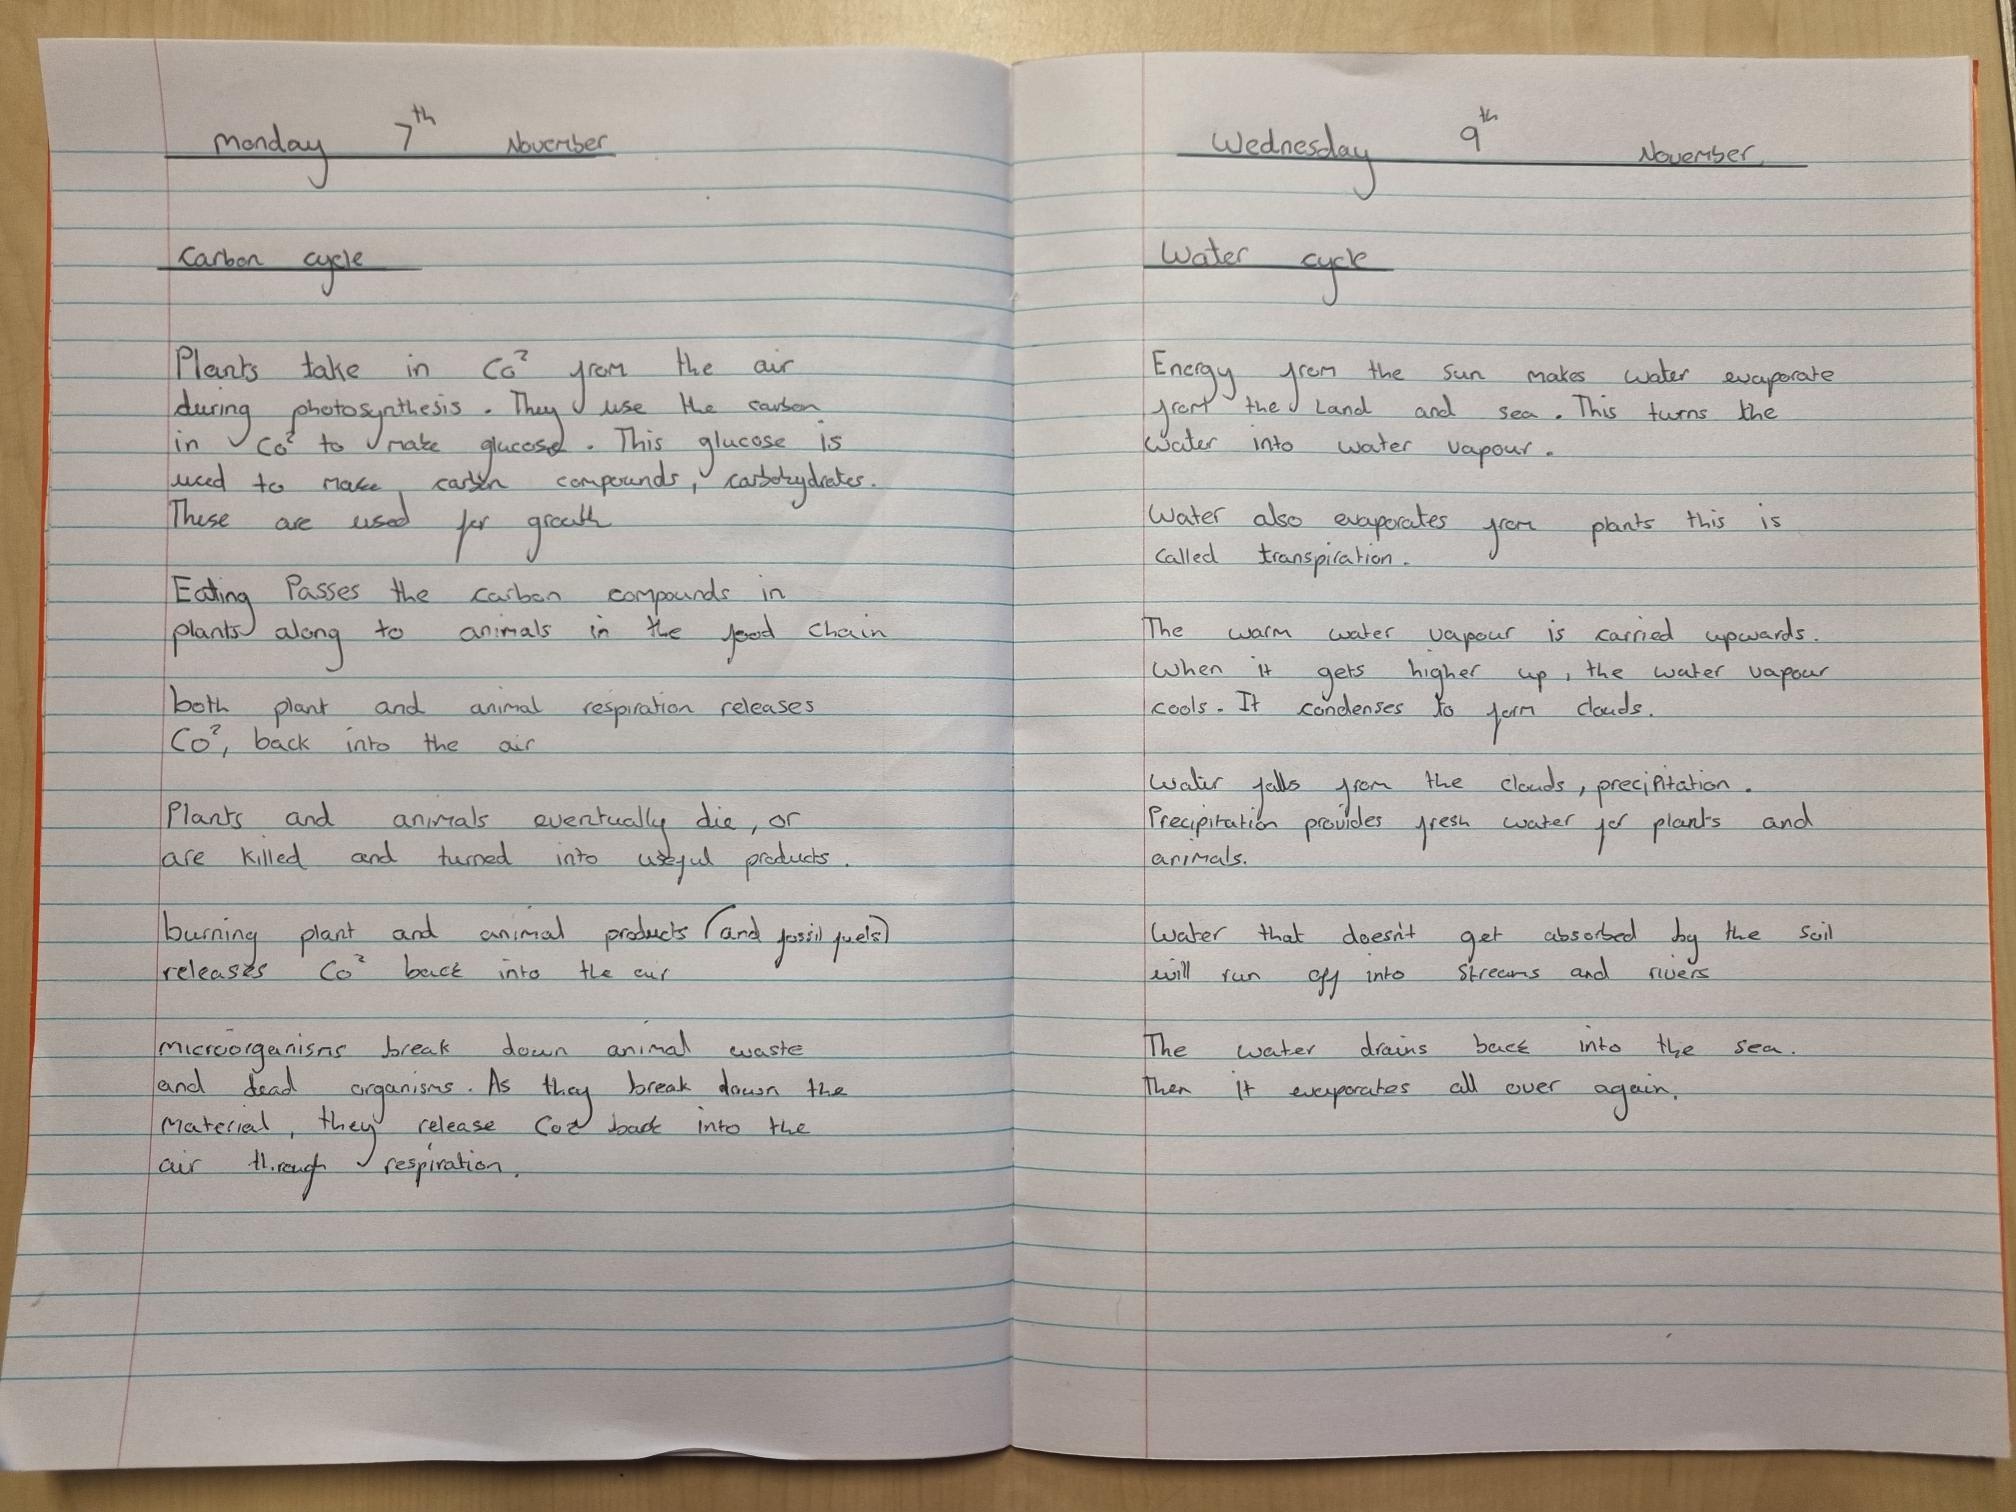 Monday 7th November
Carbon cycle
Plants take in Co² from the air
during photosynthesis. They use the carbon
in Co² to make glucose. This glucose is
used to make carbon compounds, carbohydrates.
These are used for growth
Eating Passes the carbon compounds in
plants along to animals in the food chain
both plant and animal respiration releases
Co², back into the air
Plants and animals eventually die, or
are killed and turned into useful products.
burning plant and animal products (and fossil fuels)
releases Co² back into the air
microorganisms break down animal waste
and dead organisms. As they break down the
material, they release Co2 back into the
air through respiration.
Wednesday 9th November
Water cycle
Energy from the sun makes water evaporate
from the Land and sea. This turns the
water into water vapour.
Water also evaporates from plants this is
called transpiration.
The warm water vapour is carried upwards.
When it gets higher up, the water vapour
cools. It condenses to form clouds.
Water falls from the clouds, precipitation.
Precipitation provides fresh water for plants and
animals.
Water that doesn't get absorbed by the soil
will run off into streams and rivers
The water drains back into the sea.
Then it evaporates all over again.